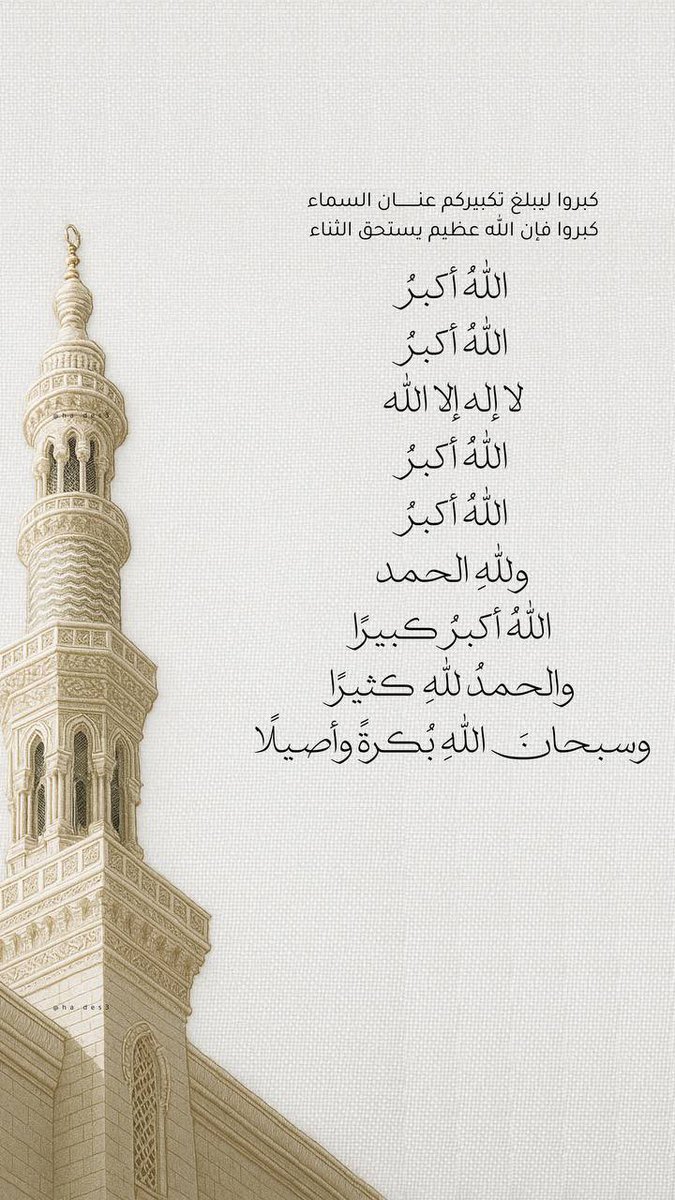 كبروا ليبلغ تكبيركم عنـــان السماء
كبروا فإن الله عظيم يستحق الثناء
اللهُ أكبرُ
اللهُ أكبرُ
لا إله إلا الله
اللهُ أكبرُ
اللهُ أكبرُ
وللهِ الحمد
اللهُ أكبرُ كبيرًا
والحمدُ للهِ كثيرًا
وسبحانَ اللهِ بُكرةً وأصيلًا
@ha_des3
@ha_des3